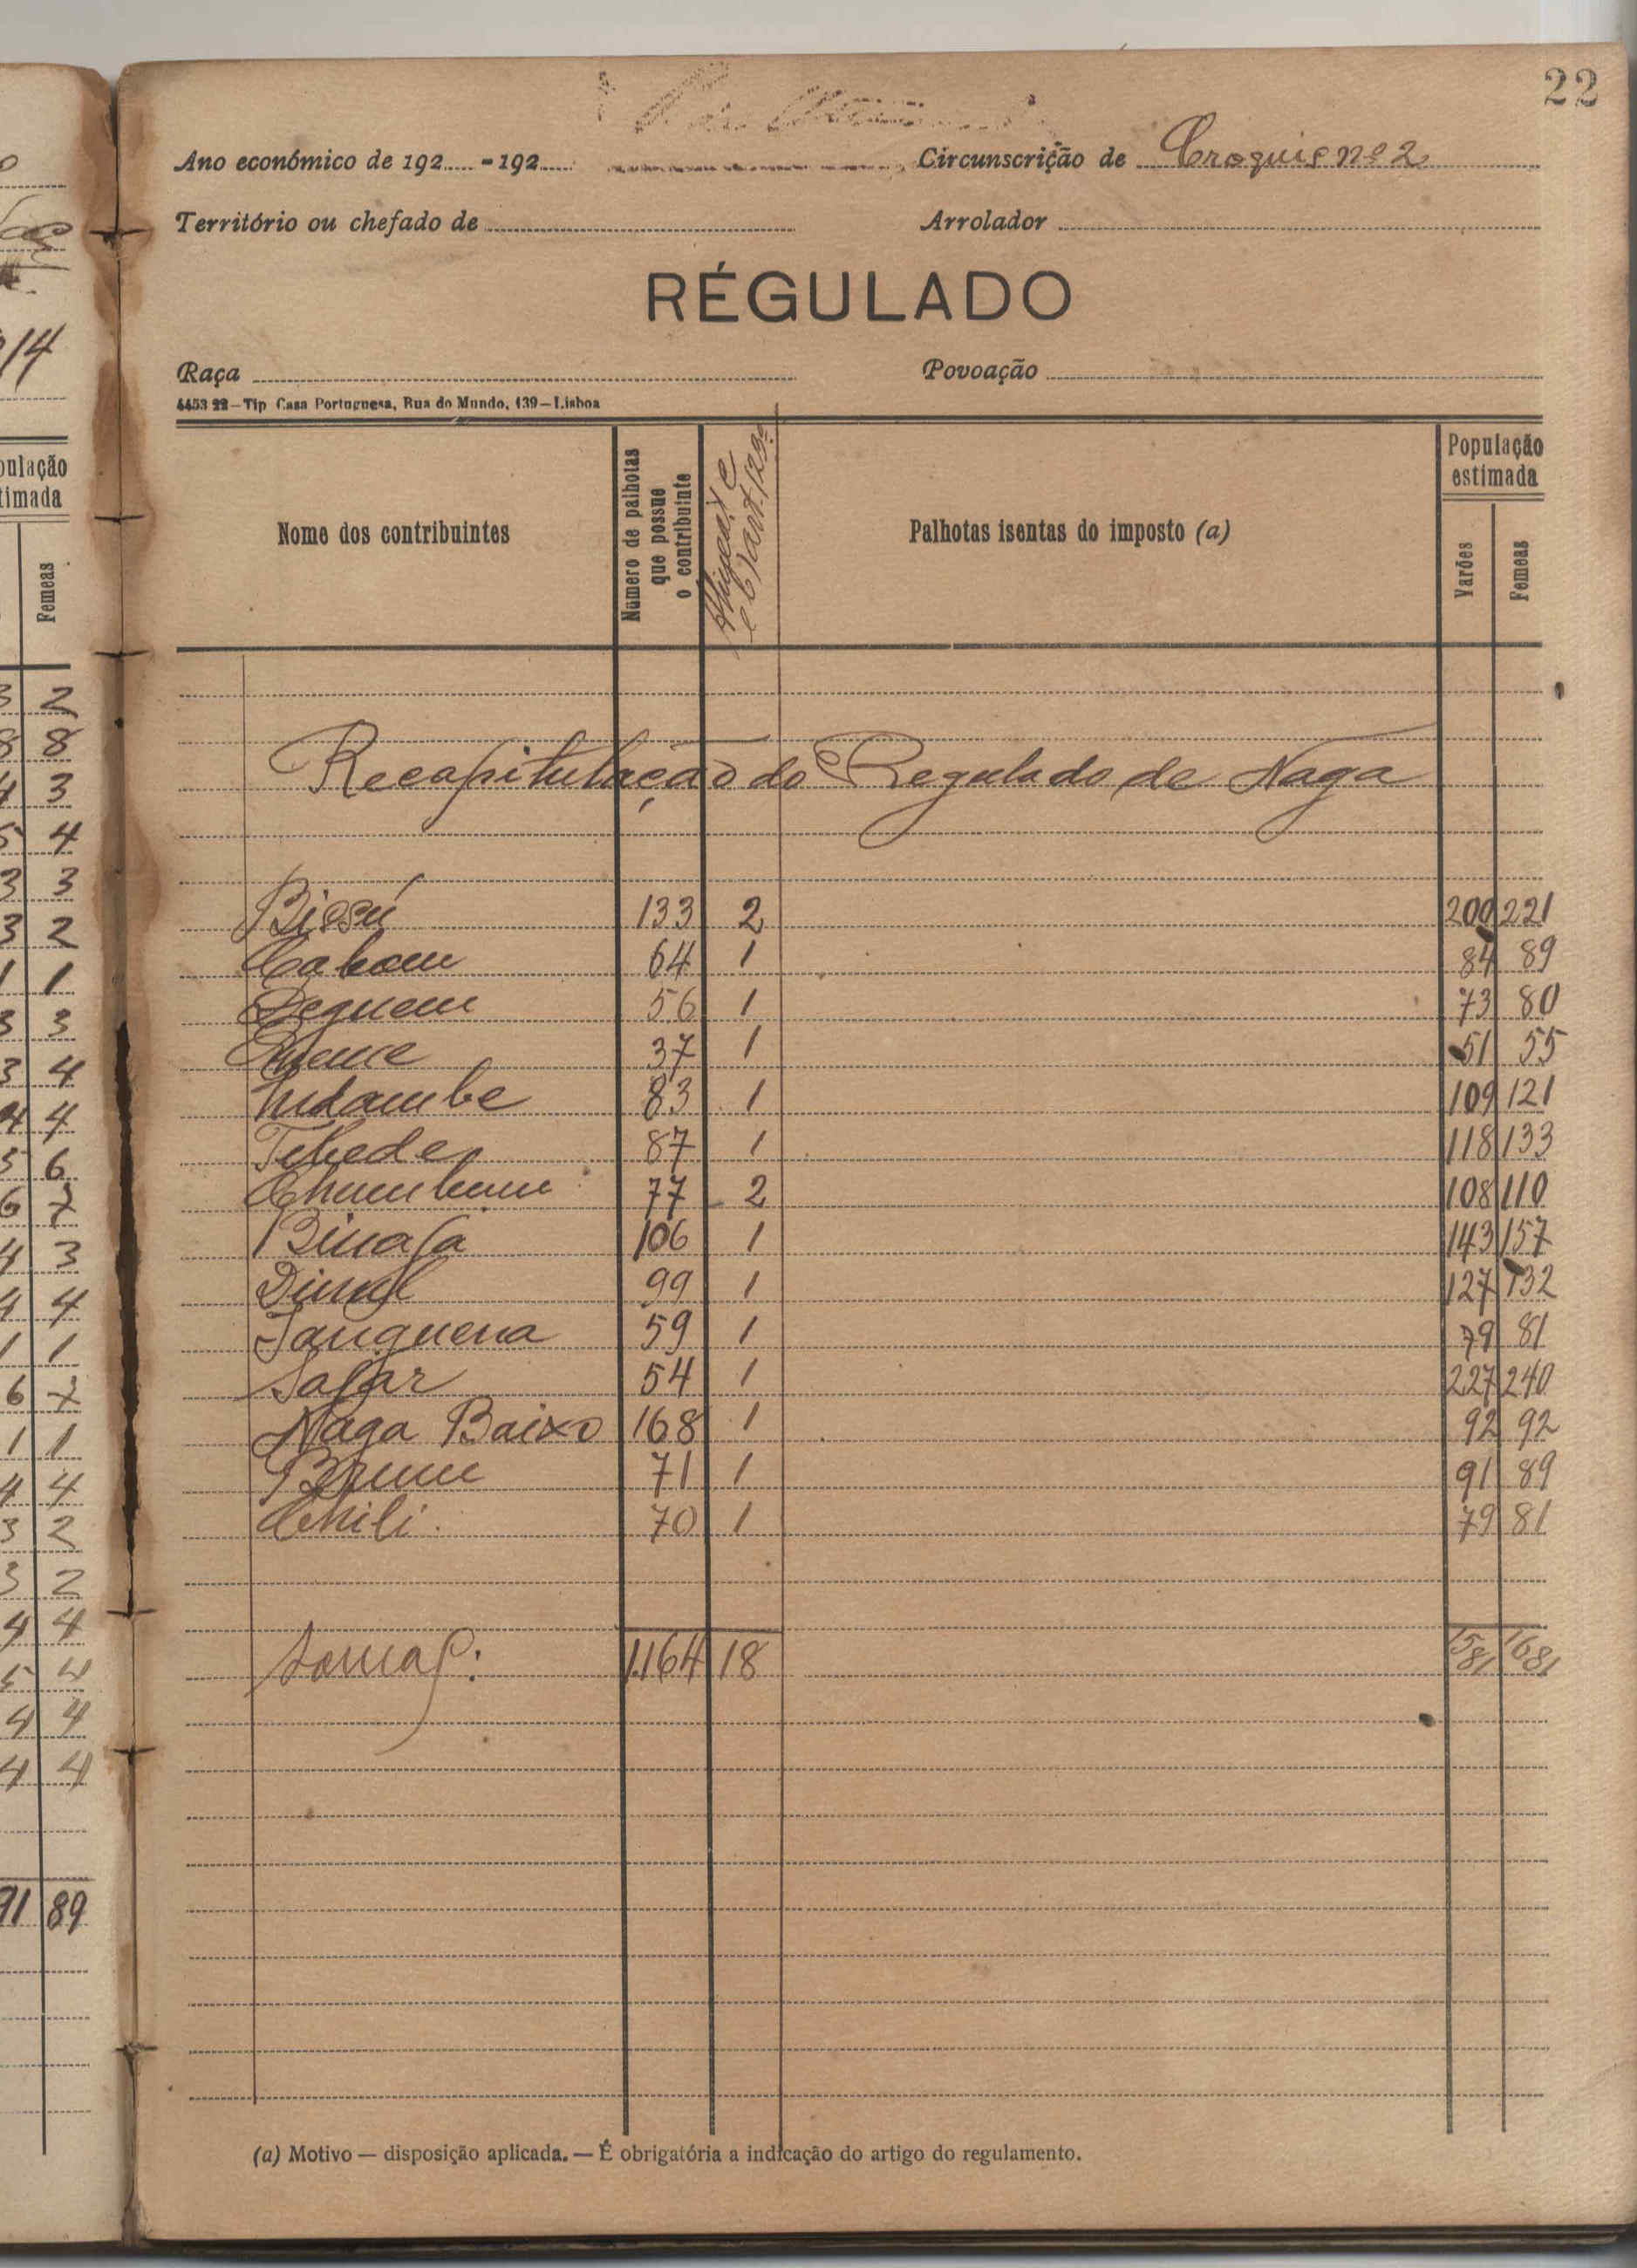 22
Ano económico de 192 - 192 Circunscrição de Croquis nº 2
Território ou chefado de Arrolador
RÉGULADO
Raça Povoação
4453 22 — Tip Casa Portuguesa, Rua do Mundo, 139 — Lisboa
Nome dos contribuintes
Número de palhotas que possue o contribuinte
e b) art. 123º
Palhotas isentas do imposto (a)
População estimada
Varões
Femeas
Recapitulação do Regulado de Naga
Bissú 133 2 200 221
Cabom 64 1 84 89
56 1 73 80
37 1 51 55
Indambe 83 1 109 121
87 1 118 133
77 2 108 110
Binafa 106 1 143 157
99 1 127 132
Janguena 59 1 79 81
Safar 54 1 227 240
Naga Baixo 168 1 92 92
71 1 91 89
Chili 70 1 79 81
Somas: 1.164 18 1581 1681
(a) Motivo — disposição aplicada. — É obrigatória a indicação do artigo do regulamento.
14
pulação
timada
Femeas
3 2
8 8
4 3
5 4
3 3
3 2
1 1
3 3
3 4
4 4
5 6
6 7
4 3
4 4
1 1
6 7
1 1
4 4
3 2
3 2
4 4
5 4
4 4
4 4
91 89